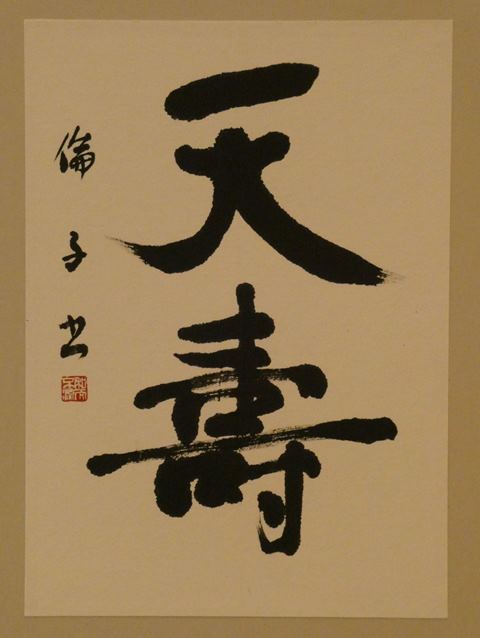 天壽
倫子书